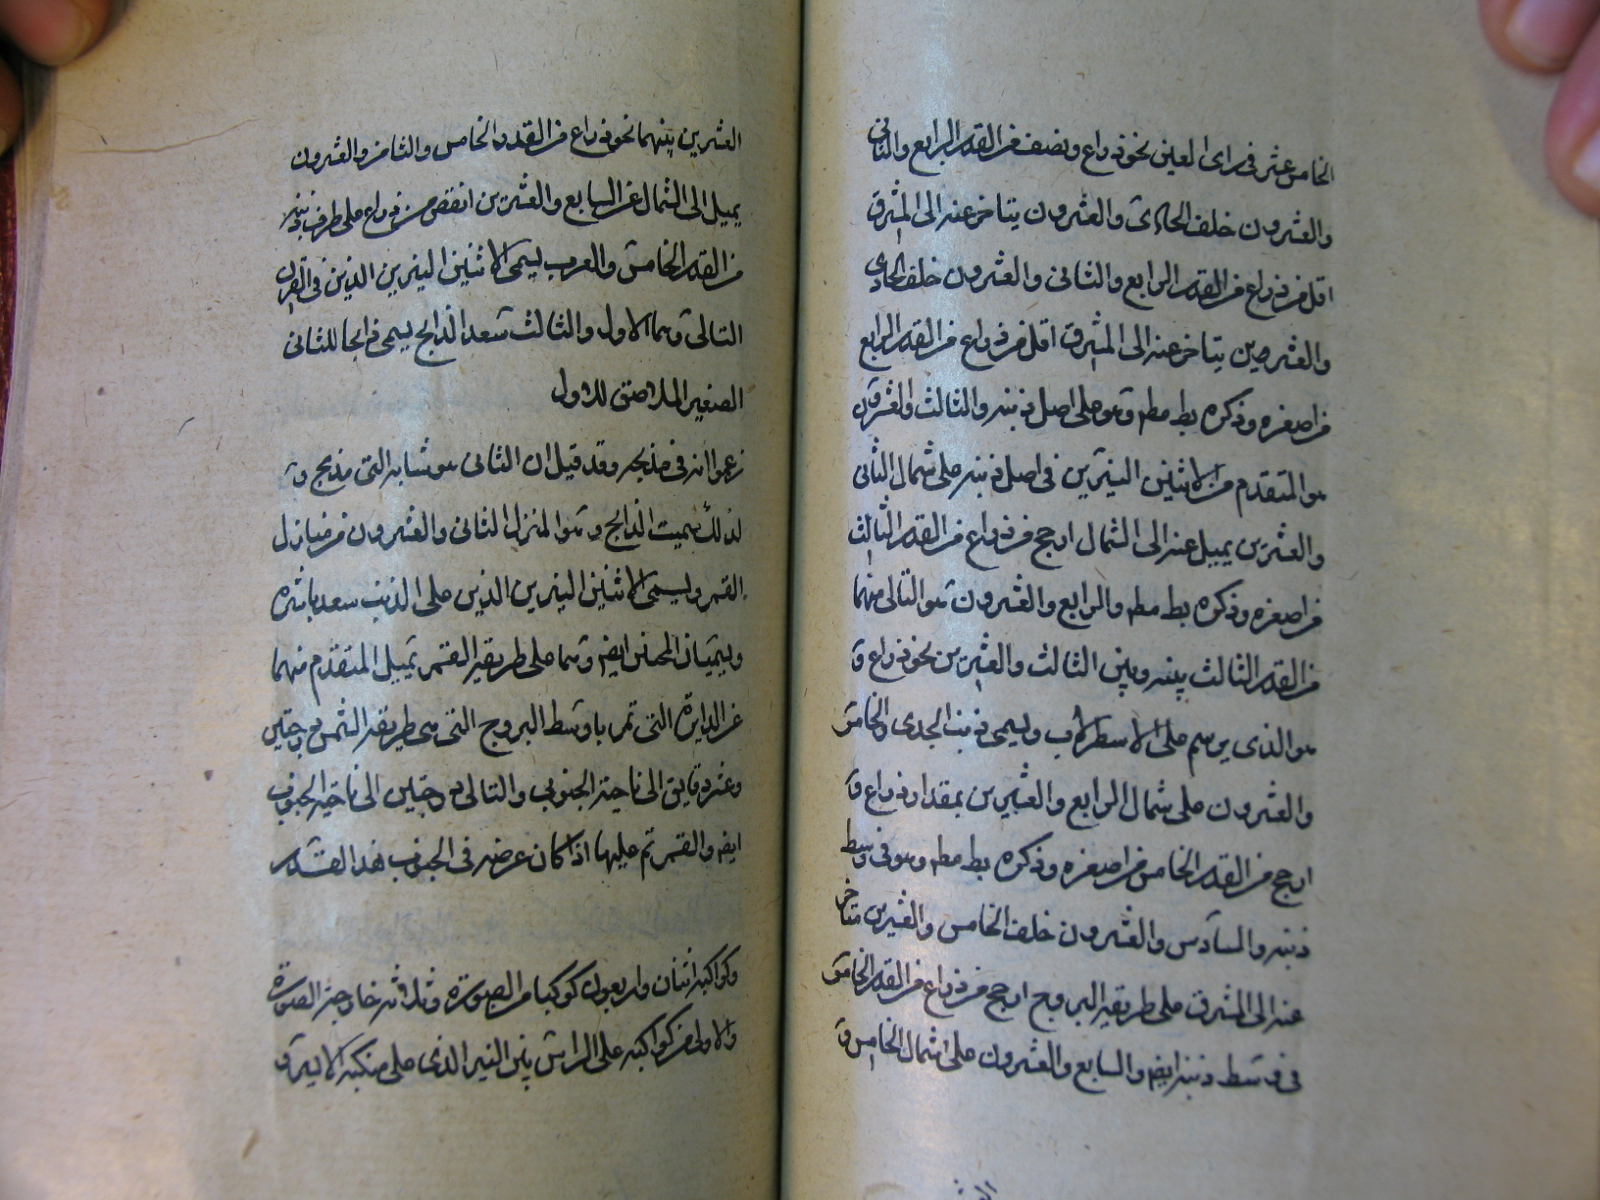 الخامس عشر فى راى العين نحو ذراع ونصف من القدر الرابع والثانى
والعشرون خلف الحادى والعشرون يتاخر عنه الى المشرق
اقل من ذراع من القدر الرابع والثانى والعشرون خلف الحادى
والعشرين يتاخر عنه الى المشرق اقل من ذراع من القدر الرابع
من اصغره وذكره بطلميوس وهو على اصل ذنبه والثالث والعشرون
هو المتقدم من الاثنين النيرين فى اصل ذنبه على شمال الثانى
والعشرين يميل عنه الى الشمال ارجح من ذراع من القدر الثالث
من اصغره وذكره والرابع والعشرون هو التالى منهما
من القدر الثالث بينه وبين الثالث والعشرين نحو ذراع و
هو الذى يرسم على الاسطرلاب ويسمى ذنب الجدى والخامس
والعشرون على شمال الرابع والعشرين بمقدار ذراع و
ارجح من القدر الخامس من اصغره وذكره وهو فى وسط
ذنبه والسادس والعشرون خلف الخامس والعشرين متاخر
عنه الى المشرق على طريقه البروج ارجح من ذراع من القدر الخامس
فى وسط ذنبه ايضا والسابع والعشرون على شمال الخامس و
العشرين بينهما نحو ذراع من القدر الخامس والثامن والعشرون
يميل الى الشمال عن السابع والعشرين انقص من ذراع على طرف ذنبه
من القدر الخامس والعرب يسمى الاثنين النيرين الذين فى القرن
التالى وهما الاول والثالث سعد الذابح يسمى ذابحا للثانى
الصغير الملاصق للاول
زعموا انه فى مذبحه وقد قيل ان الثانى هو شاته التى مذبح و
لذلك سميت الذابح وهو المنزل الثانى والعشرون من منازل
القمر ويسمى الاثنين النيرين الذين على الذنب سعد ناشره
ويسميان ايضا وهما على طريقه القمر يميل المتقدم منهما
عن الدايرة التى تمر باوسط البروج التى هى طريقه الشمس درجتين
وعشر دقايق الى ناحية الجنوب والتالى درجتين الى ناحية الجنوب
ايضا والقمر تم عليها اذا كان عرضه فى الجنوب هذا القدر
وكواكبه اثنان واربعون كوكبا من الصورة وثلاثه خارج الصورة
والاولى من كواكبه على الراس بين النير الذى على منكبه الايسر و